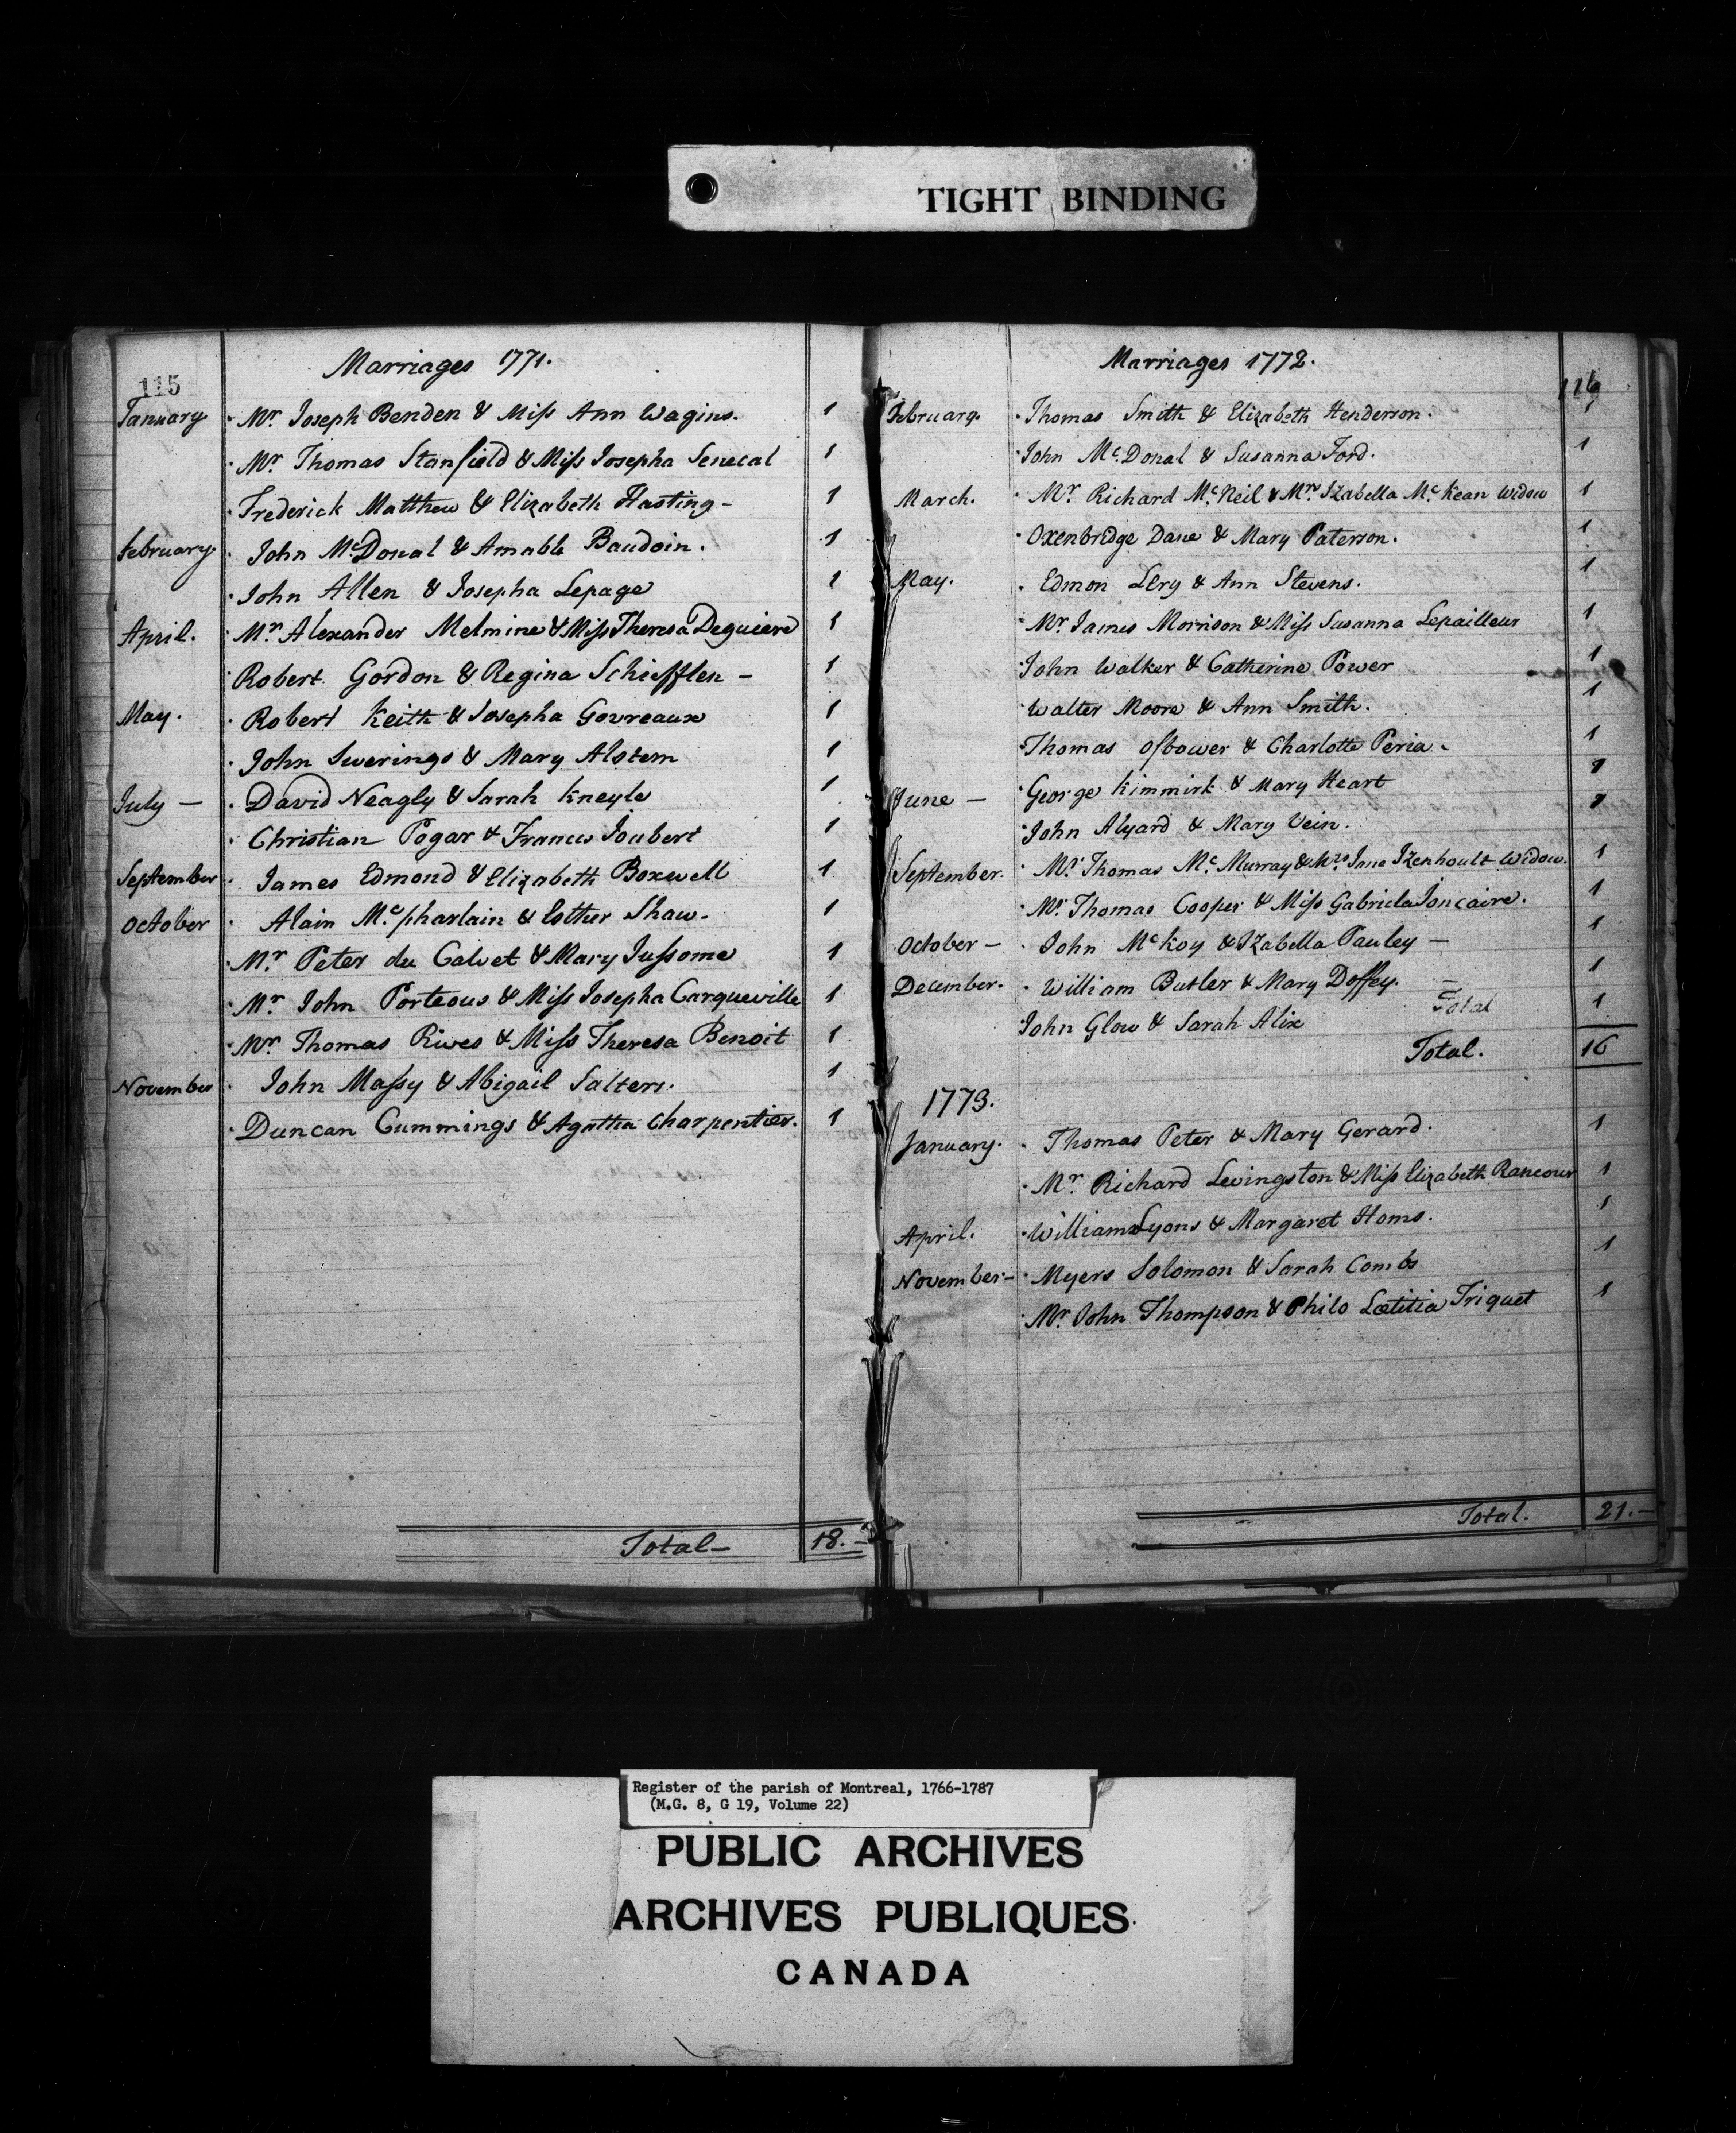 TIGHT BINDING
115
Marriages 1771.
January Mr. Joseph Benden & Miss Ann Wagins. 1
Mr. Thomas Stanfield & Miss Josepha Senecal 1
Frederick Matthew & Elizabeth Hasting - 1
February John McDonal & Amable Baudoin. 1
John Allen & Josepha Lepage 1
April. Mr. Alexander Melmine & Miss Theresa Deguiere 1
Robert Gordon & Regina Schiefflen - 1
May. Robert Keith & Josepha Govreaux 1
John Swerings & Mary Alstem 1
July - David Neagly & Sarah Kneyle 1
Christian Pogar & Frances Joubert 1
September James Edmond & Elizabeth Boxwell 1
October Alain Mc.pharlain & Esther Shaw - 1
Mr. Peter du Calvet & Mary Jussome 1
Mr. John Porteous & Miss Josepha Carqueville 1
Mr. Thomas Rives & Miss Theresa Benoit 1
November John Massy & Abigail Salters. 1
Duncan Cummings & Agatha Charpentier. 1
Total - 18. -
116
Marriages 1772.
February. Thomas Smith & Elizabeth Henderson. 1
John Mc.Donal & Susanna Ford. 1
March. Mr. Richard Mc.Neil & Mrs Izabella Mc.Kean Widow 1
Oxenbridge Dane & Mary Paterson. 1
May. Edmon Lery & Ann Stevens. 1
Mr. James Morrison & Miss Susanna Lepailleur 1
John Walker & Catherine Power 1
Walter Moore & Ann Smith. 1
Thomas Osbower & Charlotte Peria. 1
June - George Kimmirk & Mary Heart 1
John Alyard & Mary Vein. 1
September. Mr. Thomas Mc.Murray & Mrs. Jane Izenhoult Widow. 1
Mr. Thomas Cooper & Miss Gabriela Joncaire. 1
October - John McKoy & Izabella Pauley - 1
December. William Butler & Mary Doffey. - 1
Total
John Glow & Sarah Alix 1
Total. 16
1773.
January. Thomas Peter & Mary Gerard. 1
Mr. Richard Levingston & Miss Elizabeth Rancour 1
April. William Lyons & Margaret Homs. 1
November - Myers Solomon & Sarah Combs 1
Mr. John Thompson & Philo Lætitia Triquet 1
Total. 21. -
Register of the parish of Montreal, 1766-1787
(M.G. 8, G 19, Volume 22)
PUBLIC ARCHIVES
ARCHIVES PUBLIQUES
CANADA